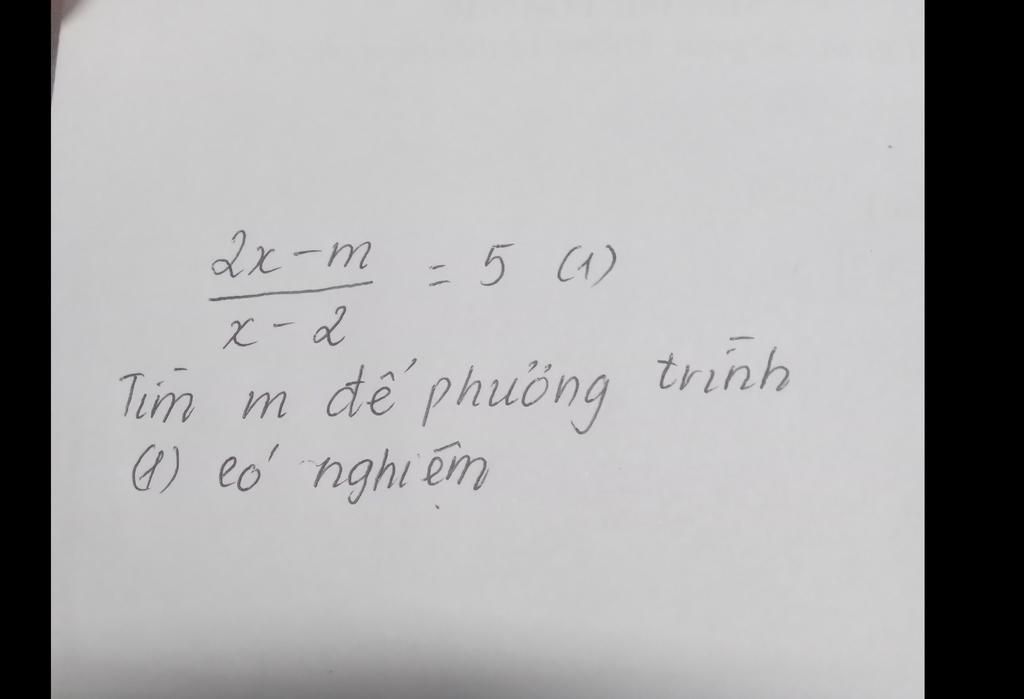 2x - m / x - 2 = 5 (1)
Tìm m để phương trình
(1) có nghiệm